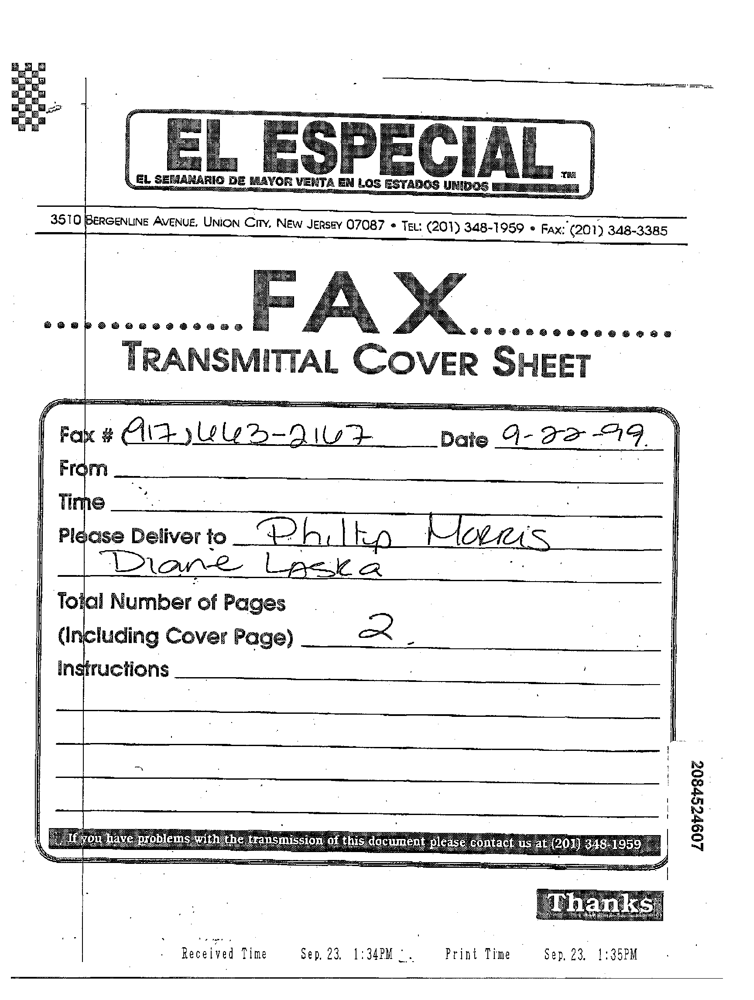 EL ESPECIAL TM
EL SEMANARIO DE MAYOR VENTA EN LOS ESTADOS UNIDOS
3510 BERGENLINE AVENUE, UNION CITY, NEW JERSEY 07087 • TEL: (201) 348-1959 • FAX: (201) 348-3385
FAX
TRANSMITTAL COVER SHEET
Fax # (917) 663-2167 Date 9-22-99.
From
Time
Please Deliver to Phillip Morris
Diane Laska
Total Number of Pages
(Including Cover Page) 2.
Instructions
If you have problems with the transmission of this document please contact us at (201) 348-1959
2084524607
Thanks
Received Time Sep. 23. 1:34PM Print Time Sep. 23. 1:35PM